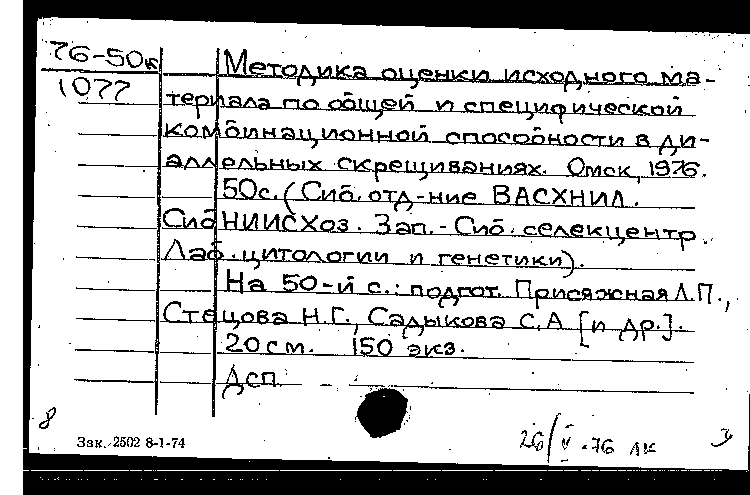 76-50к
1077
Методика оценки исходного ма-
териала по общей и специфической
комбинационной способности в ди-
аллельных скрещиваниях. Омск, 1976.
50с. (Сиб. отд-ние ВАСХНИЛ.
СибНИИСХоз. Зап.-Сиб. селекцентр.
Лаб. цитологии и генетики).
На 50-й с.: подгот. Присяжная Л.П.,
Стецова Н.Г., Садыкова С.А [и др.].
20 см. 150 экз.
Дсп.
8
Зак. 2502 8-1-74
26/V-76 лк